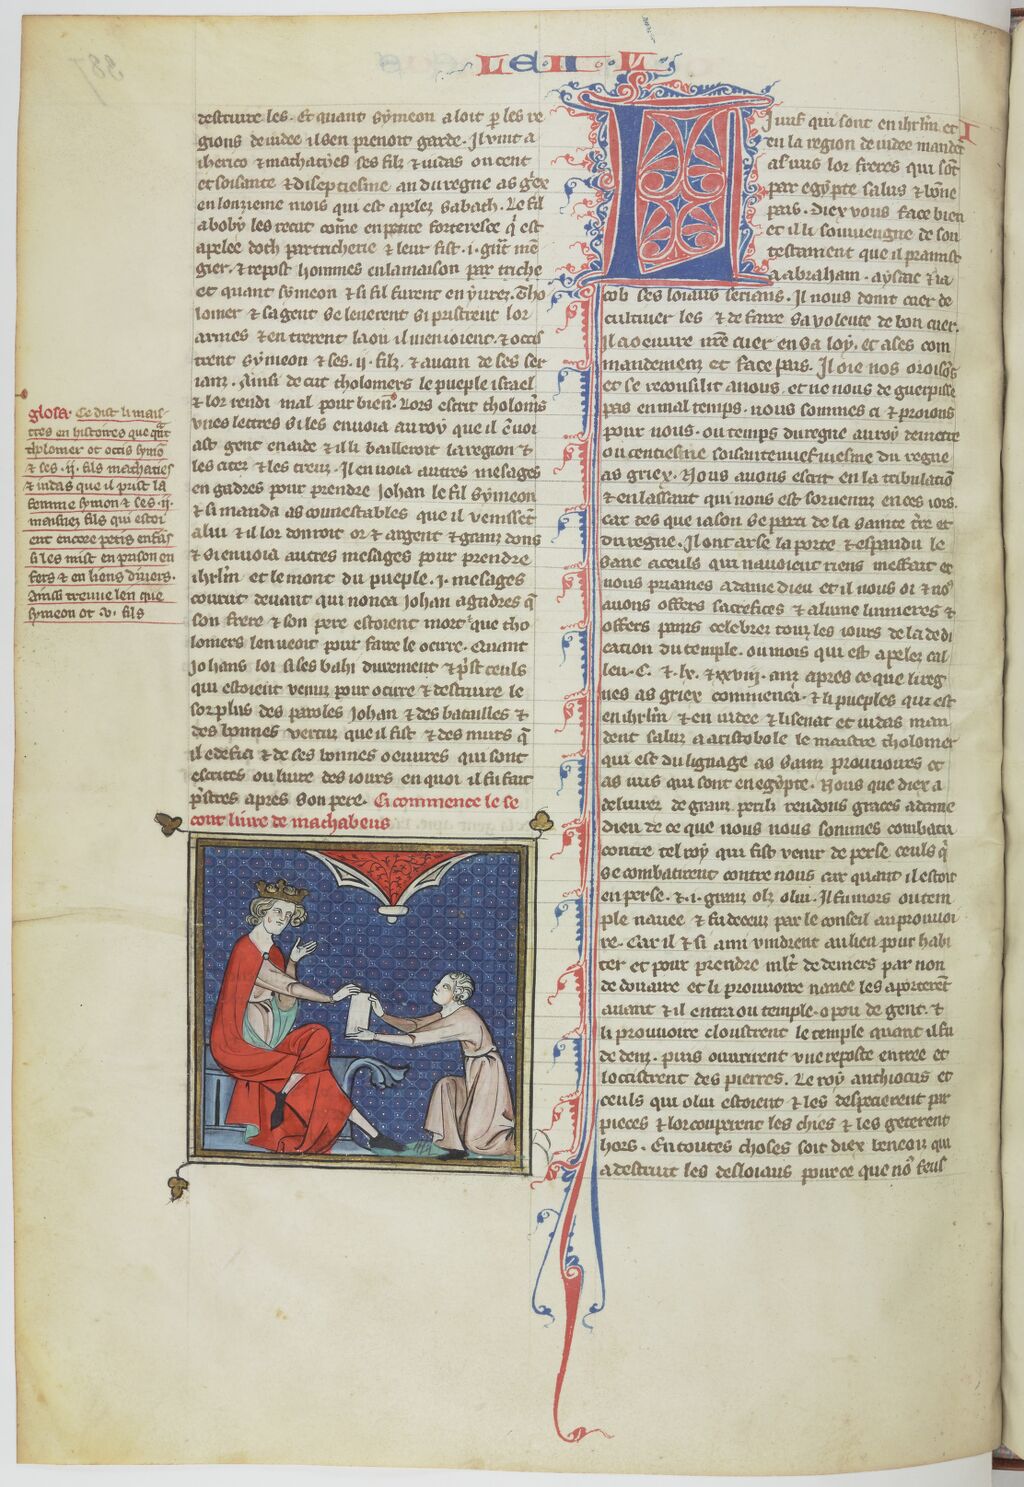 destruire les. Et quant symeon aloit p les re
gions de iudee il sen prenoit garde. Il vint a
iherico & machatyes ses filz & iudas ou cent
et soisante & diseptiesme an du regne as g'ex
en lonzieme mois qui est apelez sabath. Le fil
aboby les recut come en petite forteresce q' est
apelee doth par tricherie & leur fist .i. g'nt men
gier. & repost hommes en la maison par triche
et quant symeon & si fil furent enyurez. Tho
lomer & sa gent se leuerent si pristrent lor
armes & entrerent la ou il menioient. & occi
trent symeon & ses .ii. filz. & aucun de ses ser
ianz. Ainsi decut tholomers le pueple israel
& lor rendi mal pour bien. Lors escrit tholomers
vnes lettres si les enuoia au roy que il enuoi
ast gent en aide & il li bailleroit la region &
les citez & les treuz. Il enuoia autres mesages
en gadres pour prendre iohan le fil symeon
& si manda as connestables que il venissent
a lui & il lor donroit or & argent & granz dons
& si enuoia autres mesages pour prendre
ihrl'm et le mont du pueple. i. mesages
courut deuant qui nonca iohan a gadres q
son frere & son pere estoient mort & que tho
lomers lenueoit pour faire le ocirre. Quant
iohans loi si lesbahi durement & p'st ceuls
qui estoient venuz pour ocirre & destruire le
sorplus des paroles iohan & des batailles &
des bonnes vertuz que il fist & des murs q
il edefia & de ses bonnes oeuures qui sont
escrites ou liure des iours en quoi il fu fait
p'stres apres son pere. Ci commence le se
cont liure de machabeus
glosa. Ce dist li mais
tres en histoires que q'nt
tholomer ot occis symo
& ses .ii. filz machaties
& iudas que il prist la
femme symon & ses .ii.
mainsnez filz qui estoi
ent encore petis enfans
si les mist en prison en
fers & en liens diuers.
Ainssi treuue len que
symeon ot .v. filz
L E II L
I
Iuif qui sont en ihrl'm et
en la region de iudee mandent
as iuis lor freres qui sont
par egypte salus & bone
pais. Diex vous face bien
et il li souuiengne de son
testament que il pramist
a abraham. aysaac & ia
cob ses loiaus serians. Il nous doint cuer de
cultiuer les & de faire sa volente de bon cuer.
Il aoeuure n're cuer en sa loy. et a ses com
mandemenz et face pais. Il oie nos oroisons
et se reconsilit a nous. et ne nous deguerpisse
pas en mal temps. nous sommes ci & proions
pour nous. ou temps du regne au roy demetre
ou centiesme soisanteneufuiesme du regne
as griex. Nous auons escrit en la tribulation
& en lassaut qui nous est soruenuz en ces iors.
car des que iason se parti de la sainte t're et
du regne. Il ont arse la porte & espandu le
sanc a ceuls qui nauoient riens meffait et
nous priames a dame dieu et il nous oi & nos
auons offers sacrefices & alume lumieres &
offers pains celebrer touz les iours de la dedi
cation du temple. ou mois qui est apelez cal
leu. C. & .lx. & xxviij. anz apres ce que li reg
nes as griex commenca. & li pueples qui est
en ihrl'm & en iudee & li senat et iudas man
dent saluz a aristobole le maistre tholomer
qui est du lignage as sainz prouuoires et
as iuis qui sont en egypte. Nous que diex a
deliurez de granz perilz rendons graces a dame
dieu de ce que nous nous sommes combatu
contre tel roy qui fist venir de perse ceuls q'
se combatirent contre nous car quant il estoit
en perse. & .i. granz olz o lui. Il fu mors ou tem
ple nanee & fu deceuz par le conseil au prouuoi
re. Car il & si ami vindrent au lieu pour habi
ter et pour prendre ml't de deniers par non
de douaire et li prouuoire nanee les aporterent
auant & il entra ou temple o pou de gent. &
li prouuoire cloustrent le temple quant il fu
de denz. puis ouurirent vne reposte entree et
loccistrent des pierres. Le roy anthiocus et
ceuls qui o lui estoient & les despecierent par
pieces & lor couperent les chies & les geterent
hors. En toutes choses soit diex beneoiz qui
a destruit les desloiaus pour ce que nos feus